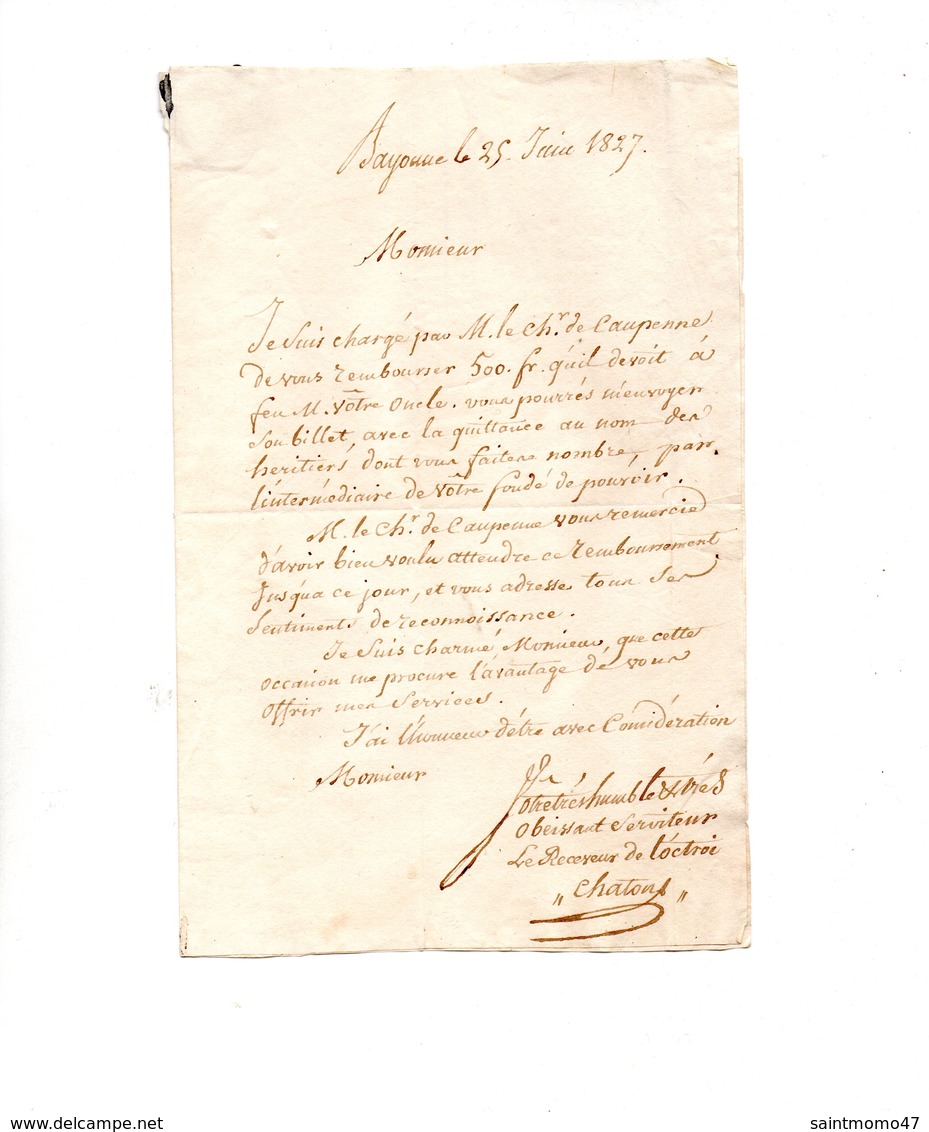 Bayonne le 25 Juin 1827.
Monsieur
Je suis chargé par M. le Chr. de Caupenne
de vous rembourser 500. fr. qu'il devoit à
feu M. vôtre oncle. vous pourrés m'envoyer
son billet, avec la quittance au nom des
heritiers dont vous faites nombre, par
l'intermédiaire de vôtre fondé de pouvoir.
M. le Chr. de Caupenne vous remercie
d'avoir bien voulu attendre ce remboursement
jusqua ce jour, et vous adresse tous ses
sentiments de reconnoissance.
Je suis charmé, Monsieur, que cette
occasion me procure l'avantage de vous
offrir mes services.
J'ai l'honneur d'être avec Considération
Monsieur
Votre trés humble & trés
obeissant serviteur
Le Receveur de l'octroi
„ Chaton „
saintmomo47